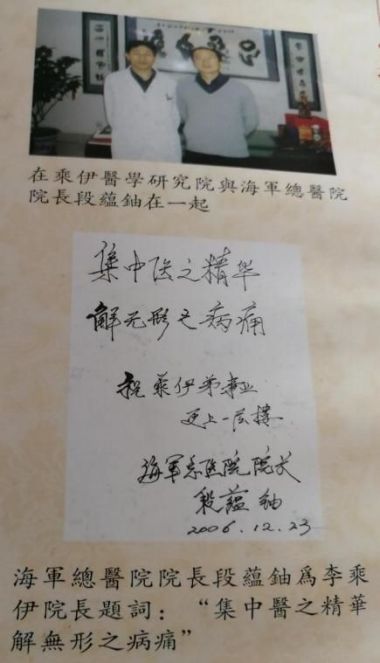 在乘伊醫學研究院與海軍總醫院
院長段蘊鈾在一起
集中医之精华
解无形之病痛
祝乘伊弟事业
更上一层楼
海军总医院院长
段蕴铀
2006.12.23
海軍總醫院院長段蘊鈾爲李乘
伊院長題詞：“集中醫之精華
解無形之病痛”